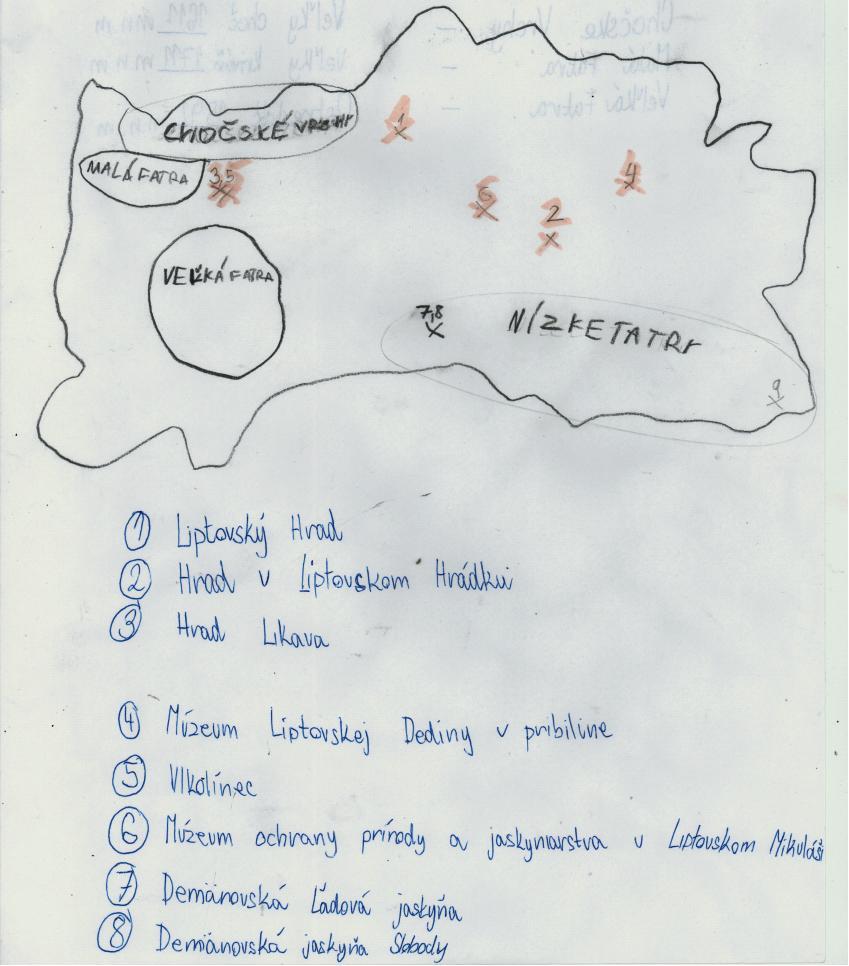 1
CHOČSKÉ VRCHY
MALÁ FATRA
3,5
4
6
2
VEĽKÁ FATRA
7,8
NÍZKE TATRY
9
1 Liptovský Hrad
2 Hrad v Liptovskom Hrádku
3 Hrad Likava
4 Múzeum Liptovskej Dediny v pribiline
5 Vlkolínec
6 Múzeum ochrany prírody a jaskyniarstva v Liptovskom Mikuláši
7 Demänovská Ľadová jaskyňa
8 Demänovská jaskyňa Slobody